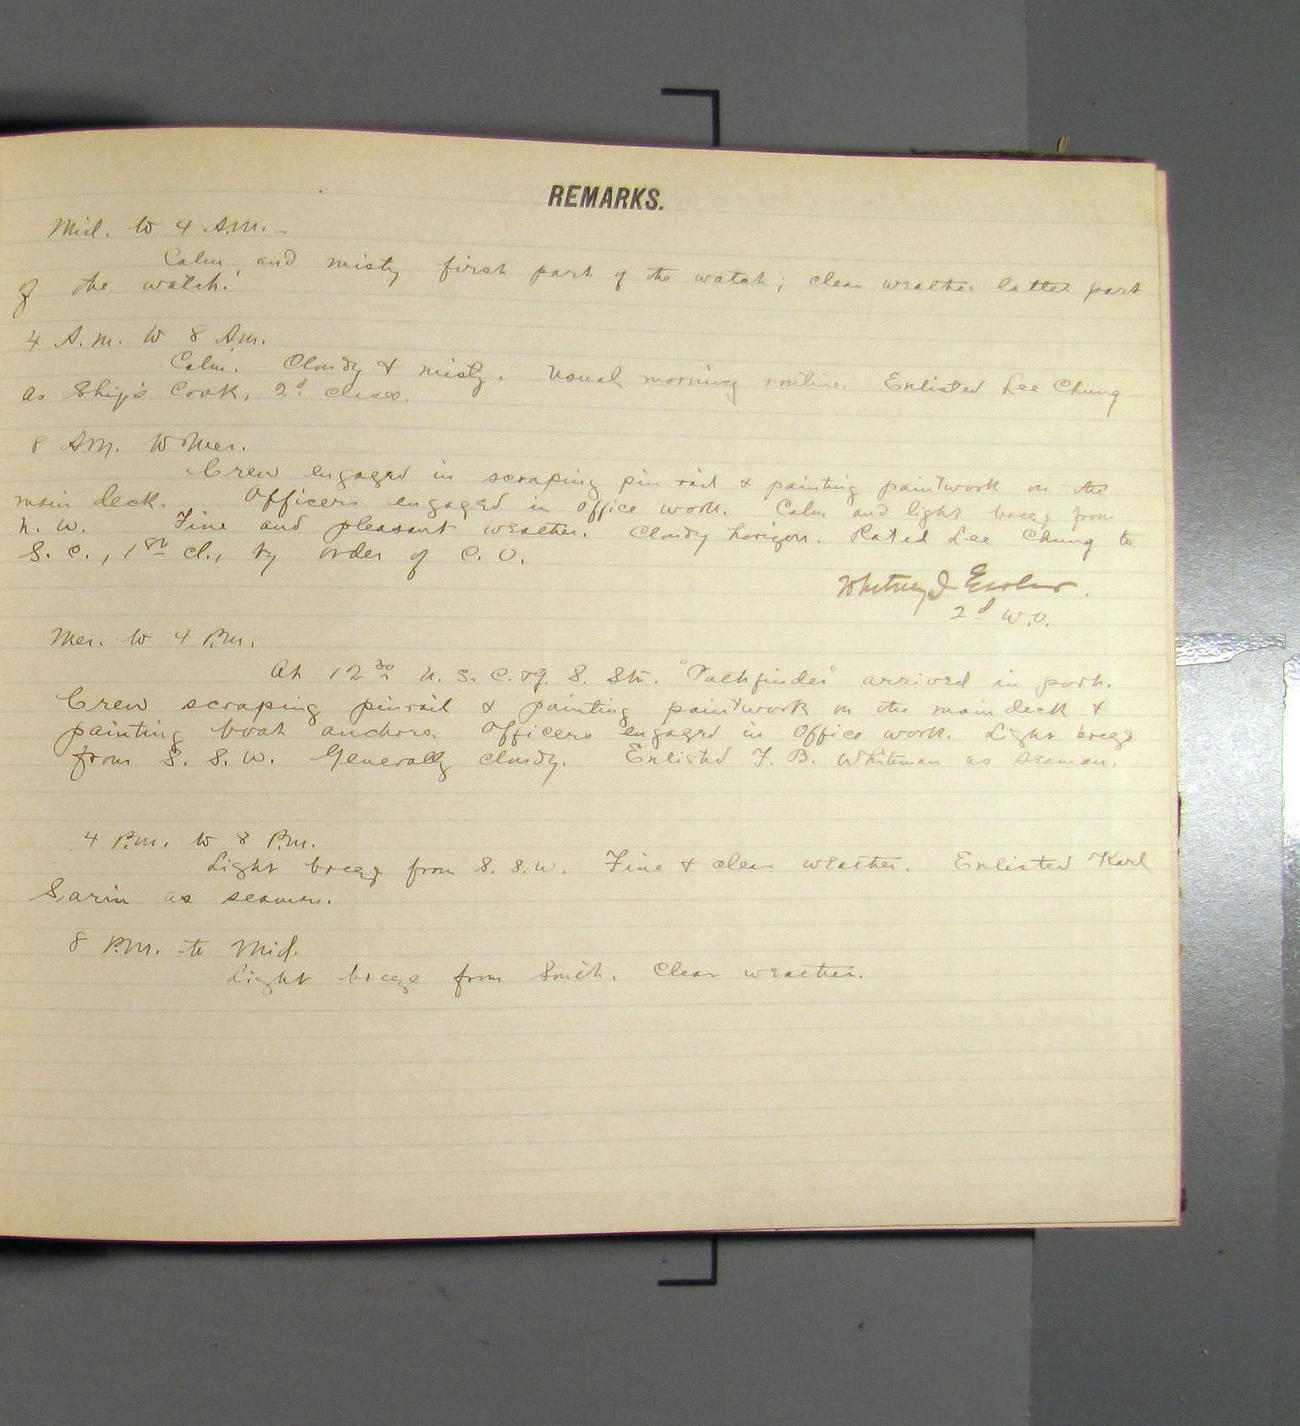 REMARKS.
Mid. to 4 A.M. -
Calm, and misty first part of the watch; clear weather latter part
of the watch.
4 A.M. to 8 A.M.
Calm. Cloudy & misty. Usual morning routine. Enlisted Lee Chung
as Ship's Cook, 2d class.
8 A.M. to Mer.
Crew engaged in scraping pin rail & painting paintwork on the
main deck. Officers engaged in office work. Calm and light breeze from
N. W. Fine and pleasant weather. Cloudy horizon. Rated Lee Chung to
S. C., 1st cl., by order of C. O.
Whitney I
2d W.O.
Mer. to 4 P.M.
At 12 30 U. S. C. & G. S. Str. "Pathfinder" arrived in port.
Crew scraping pinrail & painting paintwork on the main deck &
painting boat anchors. Officers engaged in Office work. Light breeze
from S. S. W. Generally cloudy. Enlisted F. B. Whiteman as seaman.
4 P.M. to 8 P.M.
Light breeze from S. S. W. Fine & clear weather. Enlisted Karl
Sarin as seaman.
8 P.M. to Mid.
Light breeze from South. Clear weather.